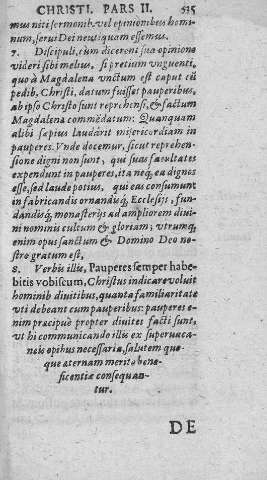 CHRISTI. PARS II. 535
mus niti sermonib. vel opinionibus homi-
num, servi Dei neutiquam essemus.
7. Discipuli, cùm dicerent sua opinione
videri sibi melius, si pretium unguenti,
quo à Magdalena unctum est caput cũ
pedib. Christi, datum fuisset pauperibus,
ab ipso Christo sunt reprehensi, & factum
Magdalena commẽdatum: Quanquam
alibi sæpius laudarit misericordiam in
pauperes. Unde docemur, sicut reprehen-
sione digni non sunt, qui suas facultates
expendunt in pauperes, ita neq, ea dignos
esse, sed laude potius, qui eas consumunt
in fabricandis ornandisq́; Ecclesijs, fun-
dandisq́; monasterijs ad ampliorem divi-
ni nominis cultum & gloriam; utrumq;
enim opus sanctum & Domino Deo no-
stro gratum est.
8. Verbis illis, Pauperes semper habe-
bitis vobiscum, Christus indicare voluit
hominib. divitibus, quanta familiaritate
uti debeant cum pauperibus: pauperes e-
nim præcipuè propter divites facti sunt,
ut hi communicando illis ex supervaca-
neis opibus necessaria, salutem quo-
que æternam merito bene-
ficentiæ consequan-
tur.
DE